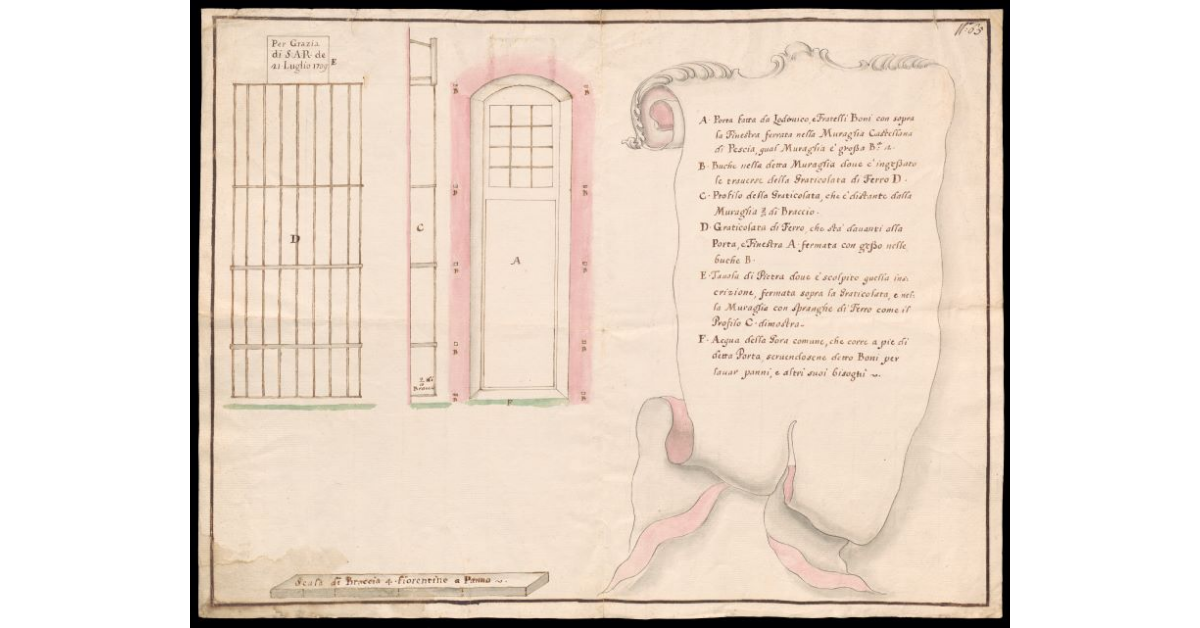 N.º 63
Per Grazia
di S.A.R. de
21 Luglio 1709
E
D
C
A
B
B
B
B
B
B
B
B
B
B
F
Braccio
A· Porta fatta da Lodovico, e Fratelli Boni con sopra
la Finestra ferrata nella Muraglia Castellana
di Pescia, qual Muraglia è großa B.ª 2.
B· Buche nella detta Muraglia doue è ingeßato
le trauerse della Graticolata di Ferro D·
C· Profilo della Graticolata, che è distante dalla
Muraglia di Braccio·
D· Graticolata di Ferro, che stà dauanti alla
Porta, e Finestra A· fermata con geßo nelle
buche B·
E· Tauola di Pietra doue è scolpito quella ins=
crizione, fermata sopra la Graticolata, e nel=
la Muraglia con spranghe di Ferro come il
Profilo C· dimostra·
F· Acqua della Gora comune, che corre a piè di
detta Porta, seruendosene detto Boni per
lauar panni, e altri suoi bisogni
Scala di Braccia 4· fiorentine a Panno